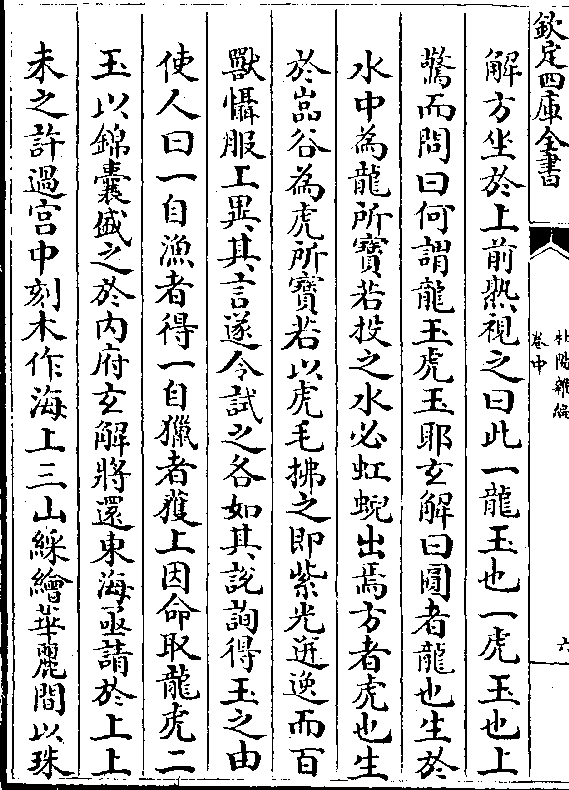 欽定四庫全書
杜陽雜編
卷中
六
解方坐於上前熟視之曰此一龍玉也一虎玉也上
驚而問曰何謂龍玉虎玉耶玄解曰圓者龍也生於
水中為龍所寳若投之水必虹蜺出焉方者虎也生
於嵓谷為虎所寳若以虎毛拂之即紫光迸逸而百
獸懾服上異其言遂令試之各如其説詢得玉之由
使人曰一自漁者得一自獵者獲上因命取龍虎二
玉以錦囊盛之於内府玄解將還東海亟請於上上
未之許過宫中刻木作海上三山綵繪華麗間以珠